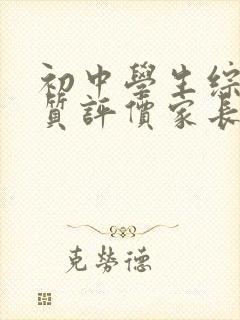 初中學生綜
質評價家長
克勞德